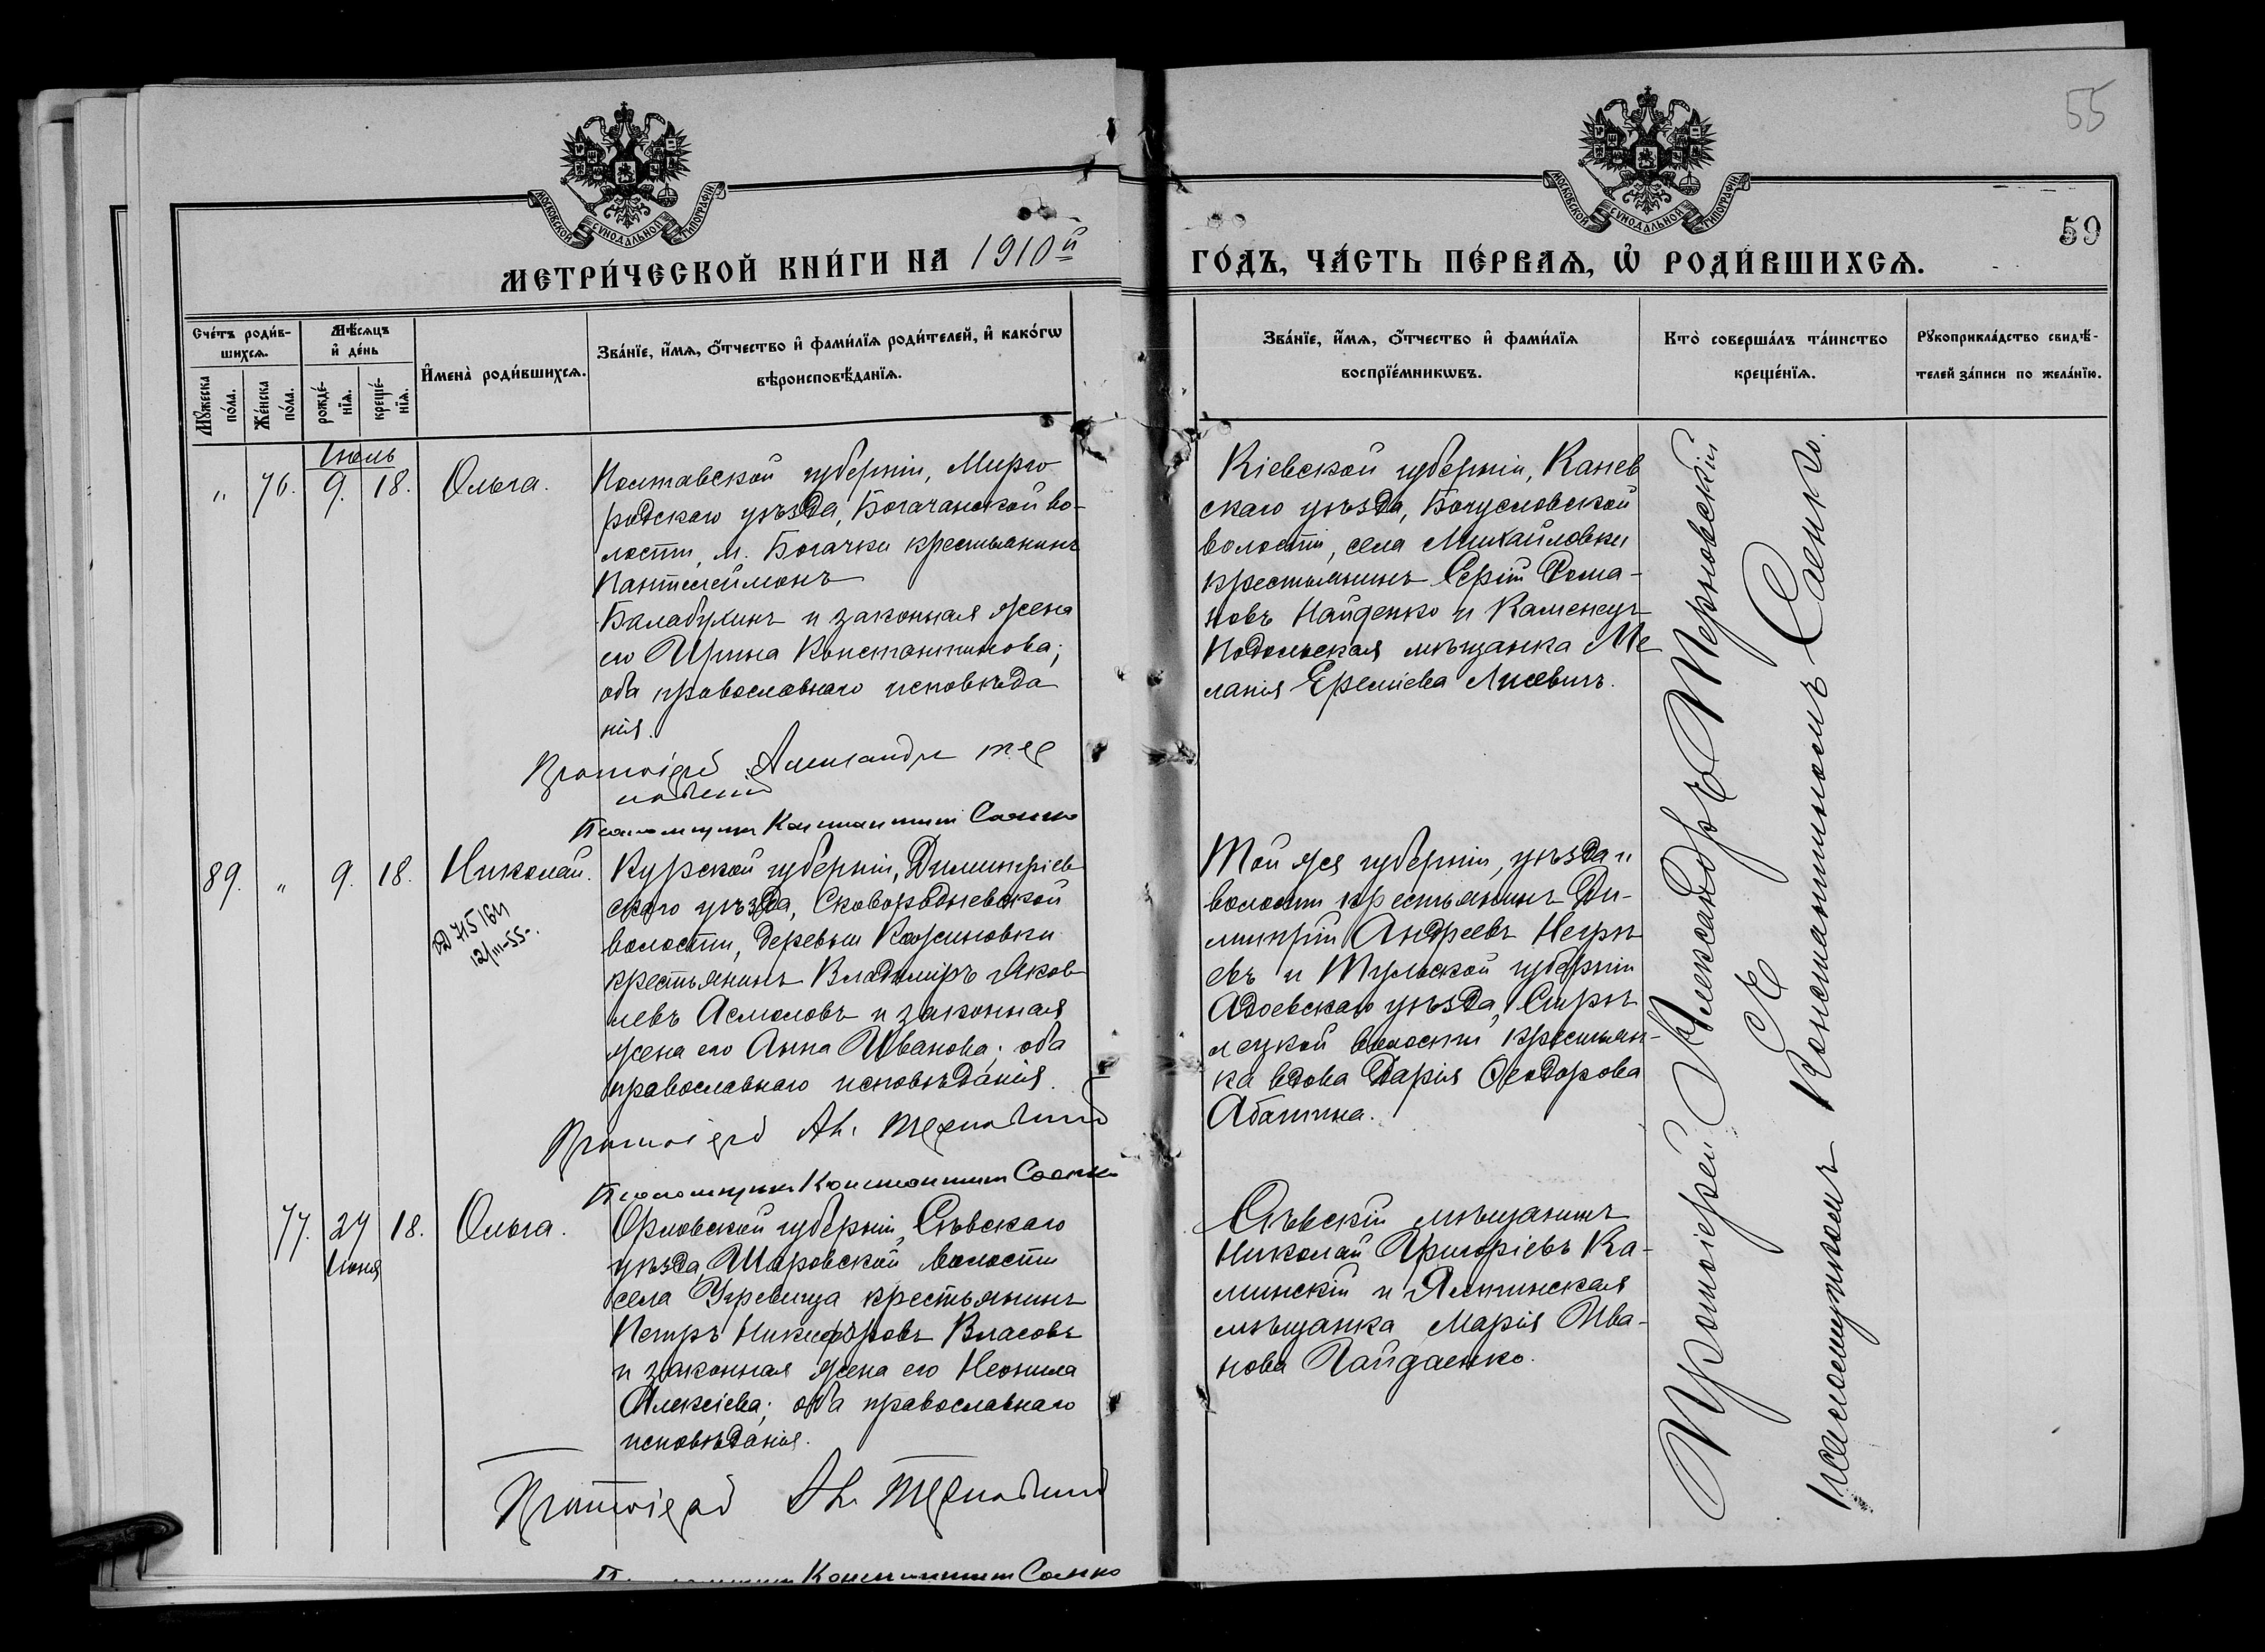 55
59
МОСКОВСКОЙ СУНОДАЛЬНОЙ ТИПОГРАФІИ
МОСКОВСКОЙ СУНОДАЛЬНОЙ ТИПОГРАФІИ
МЕТРИ́ЧЕСКОЙ КНИ́ГИ НА 1910й
ГО́ДЪ, ЧА́СТЬ ПЕ́РВАѦ, Ѡ҆ РОДИ́ВШИХСѦ.
Сче́тъ роди́в-
шихсѧ.
Мꙋ́жеска по́ла.
Же́нска по́ла.
Мѣ́сѧцъ
и҆ де́нь
рожде́-
нїѧ.
креще́-
нїѧ.
И҆мена̀ роди́вшихсѧ.
Зва́нїе, и҆́мѧ, ѻ҆́тчество и҆ фами́лїѧ роди́телей, и҆ како́гѡ
вѣроисповѣ́данїѧ.
Зва́нїе, и҆́мѧ, ѻ҆́тчество и҆ фами́лїѧ
воспрїе́мникѡвъ.
Кто̀ соверша́лъ та́инство
креще́нїѧ.
Рꙋкоприкла́дство свидѣ́-
телей за́писи по жела́нїю.
Іюль
„ 76. 9. 18. Ольга.
Полтавской губерніи, Мирго
родскаго уѣзда, Богачанской во-
лости, м. Богачки крестьянинъ
Пантелеймонъ
Балабухинъ и законная жена
его Ирина Константинова;
оба православнаго исповѣда
нія.
Протоіерей Александръ Тер
новскій
Псаломщикъ Константинъ Саенко
Кіевской губерніи, Канев
скаго уѣзда, Богусловской
волости, села Михайловки
крестьянинъ Сергій Рома-
новъ Найденко и Каменецъ
Подольская мѣщанка Ме
ланія Ереміева Лисевичъ.
89. „ 9. 18. Николай.
12/III-55.
Курской губерніи, Димитріев
скаго уѣзда, Сковородневской
волости, деревни
крестьянинъ Владиміръ Яков
левъ Асмоловъ и законная
жена его Анна Иванова; оба
православнаго исповѣданія.
Протоіерей Ал. Терновскій
Псаломщикъ Константинъ Саенко
Той же губерніи, уѣзда и
волости крестьянинъ Ди-
митрій Андреевъ
и Тульской губерніи
Адоевскаго уѣзда,
волости крестьян-
ка вдова Дарія Ѳеодорова
77. 27 18. Ольга.
Іюня
Орловской губерніи, Сѣвскаго
уѣзда Шаровской волости
села Угревища крестьянинъ
Петръ Никифоровъ Власовъ
и законная жена его Неонила
Алексіева; оба православнаго
исповѣданія.
Протоіерей Ал. Терновскій
Константинъ Саенко
Сѣвскій мѣщанинъ
Николай Григоріевъ Ка-
минскій и Ялтинская
мѣщанка Марія Ива-
нова Гайдаенко.
Протоіерей Александръ Терновскій
съ
псаломщикомъ Константиномъ Саенко.